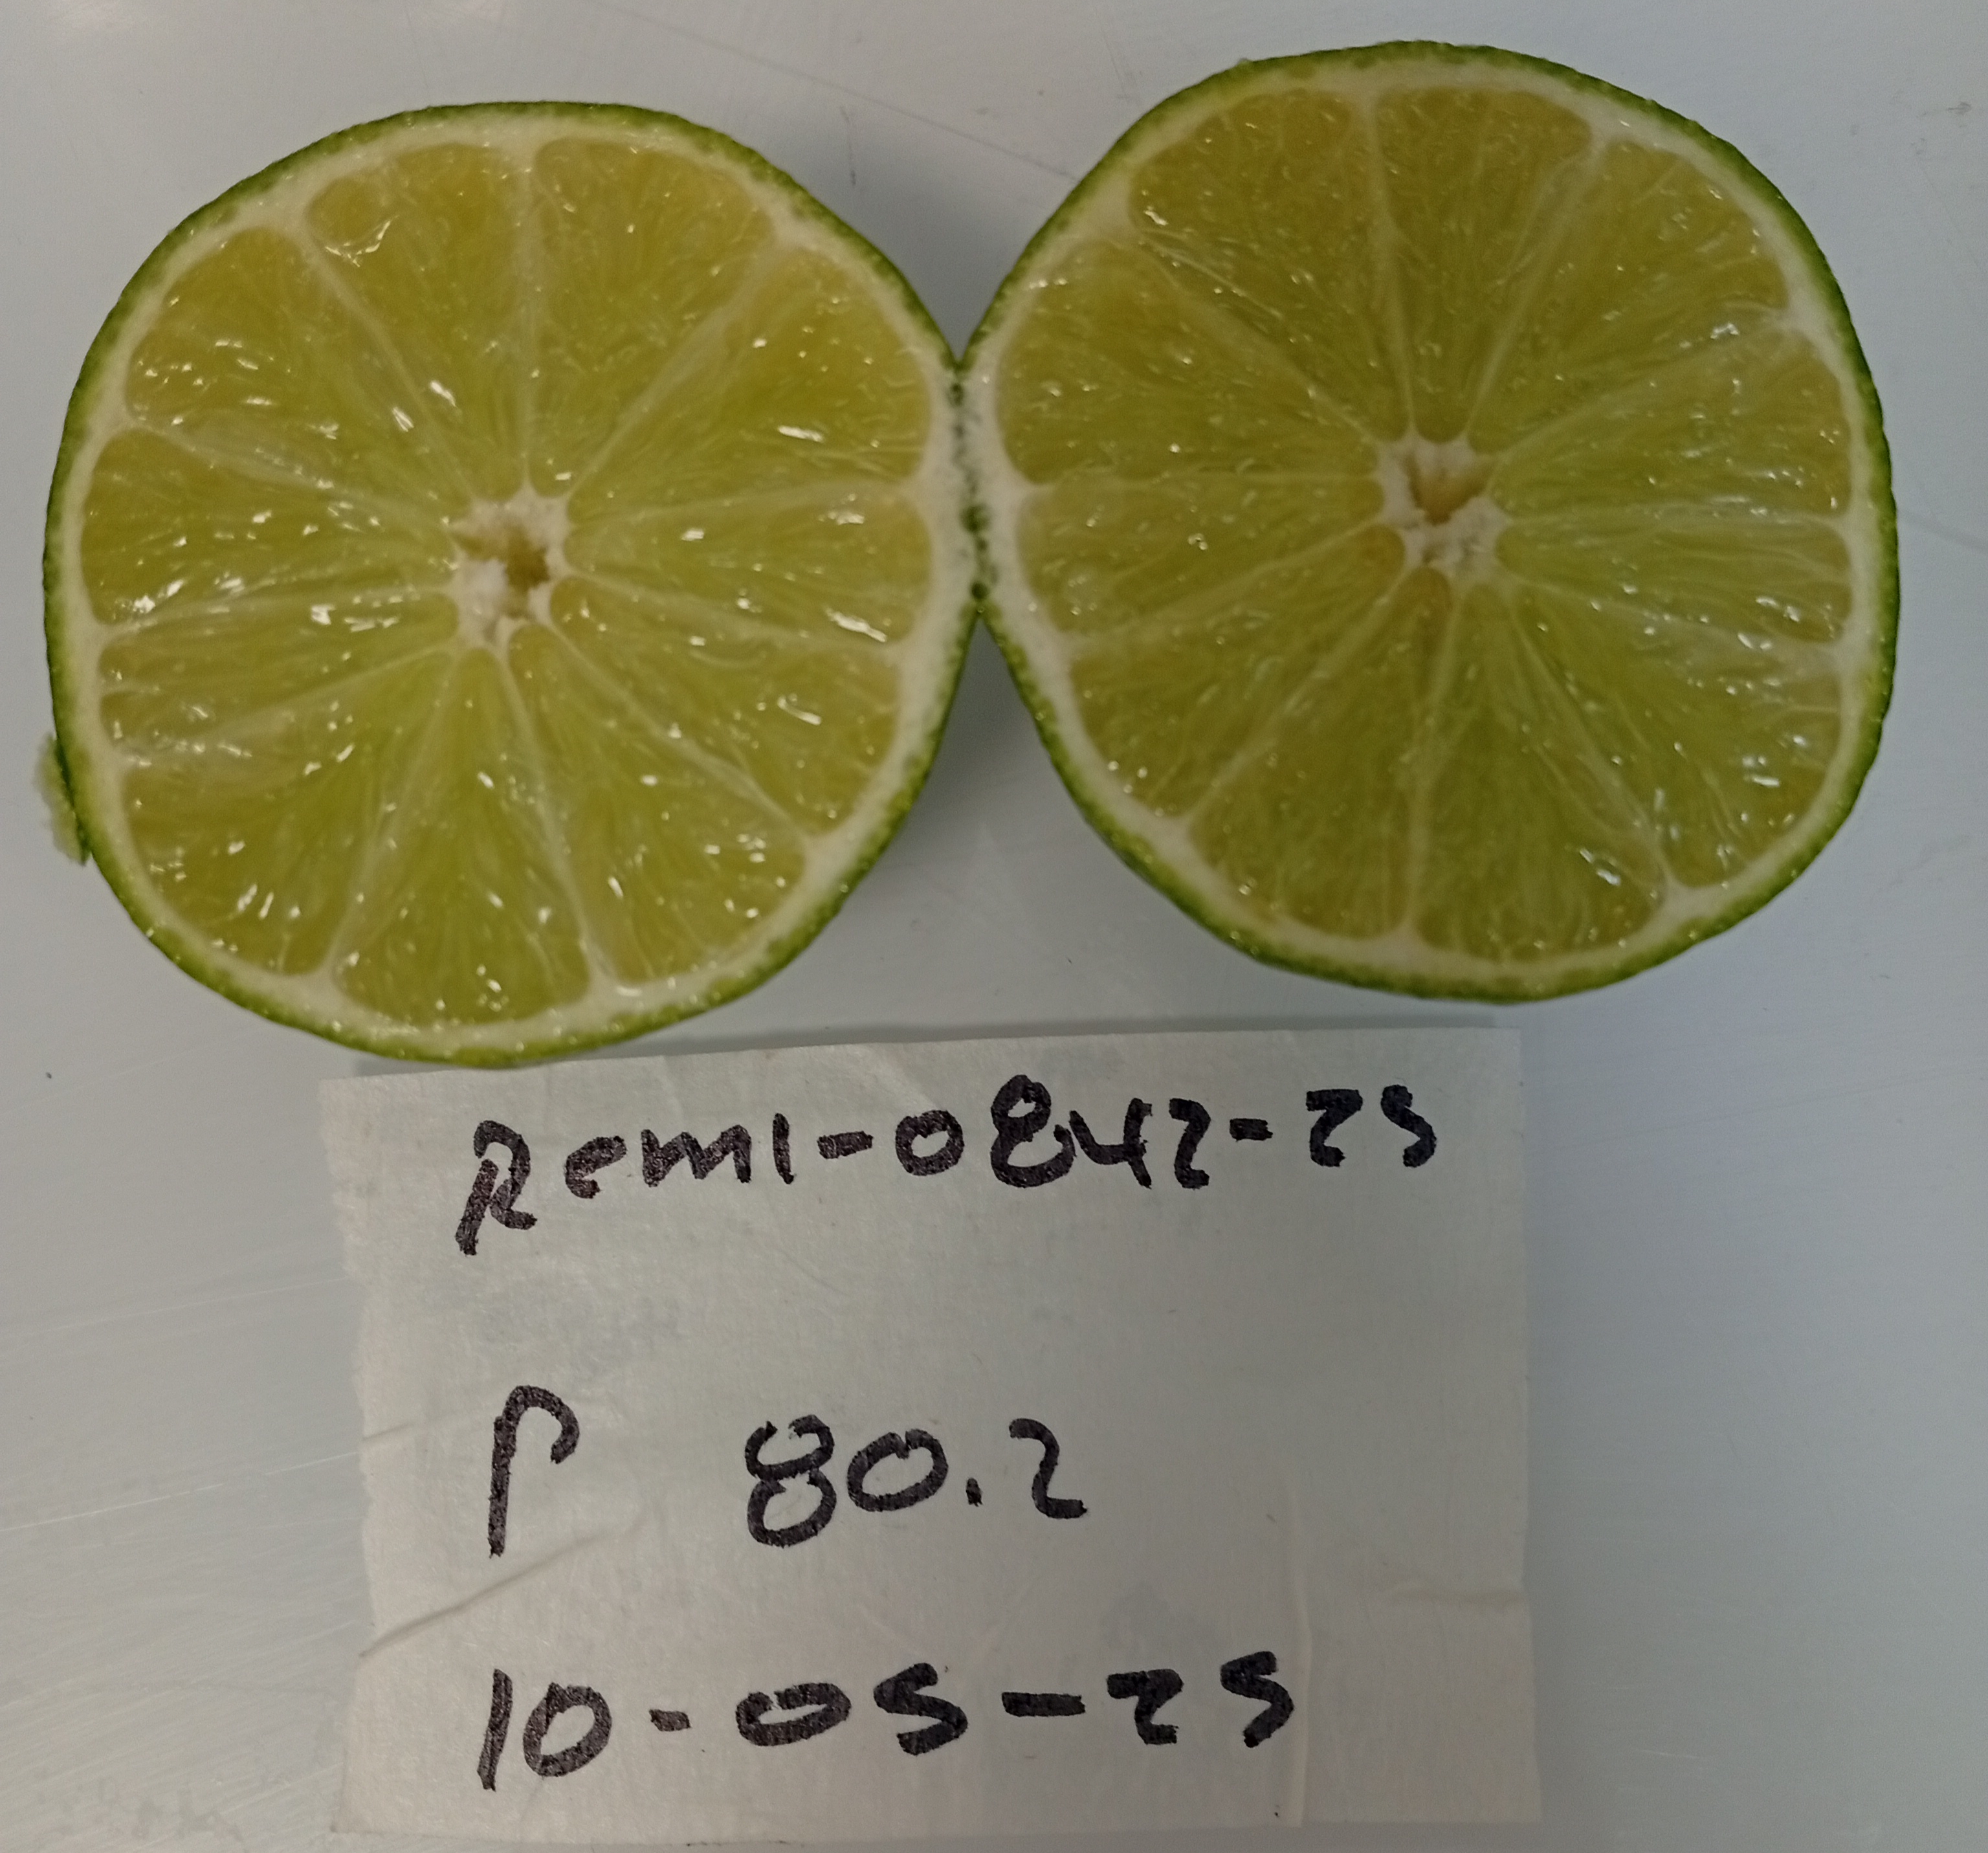 Remi-0842-25
P 80.2
10-05-25